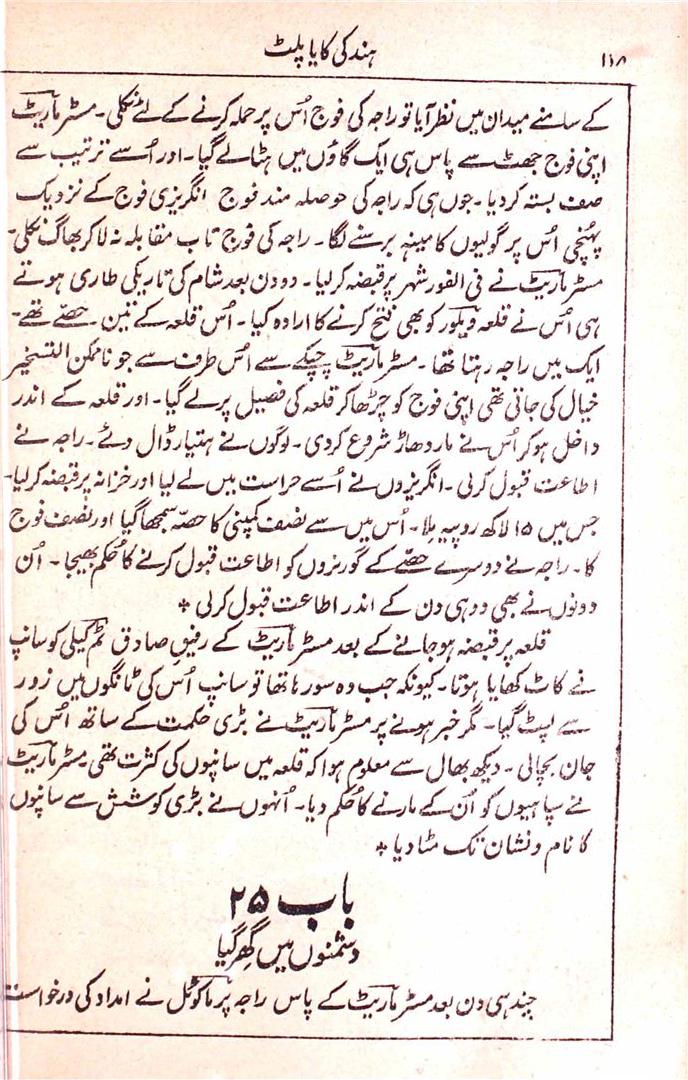 ۱۱۸
ہند کی کایا پلٹ
کے سامنے میدان میں نظر آیا تو راجہ کی فوج اُس پر حملہ کرنے کے لئے نکلی۔ مسٹر ماریٹ
اپنی فوج جھٹ سے پاس ہی ایک گاؤں میں ہٹا لے گیا۔ اور اُسے ترتیب سے
صف بستہ کر دیا۔ جوں ہی کہ راجہ کی حوصلہ مند فوج انگریزی فوج کے نزدیک
پہنچی اُس پر گولیوں کا مینہ برسنے لگا۔ راجہ کی فوج تاب مقابلہ نہ لا کر بھاگ نکلی۔
مسٹر ماریٹ نے فی الفور شہر پر قبضہ کر لیا۔ دو دن بعد شام کی تاریکی طاری ہوتے
ہی اُس نے قلعہ ویلور کو بھی فتح کرنے کا ارادہ کیا۔ اُس قلعہ کے تین حصّے تھے۔
ایک میں راجہ رہتا تھا۔ مسٹر ماریٹ چپکے سے اُس طرف سے جو ناممکن التسخیر
خیال کی جاتی تھی اپنی فوج کو چڑھا کر قلعہ کی فصیل پر لے گیا۔ اور قلعہ کے اندر
داخل ہو کر اُس نے مار دھاڑ شروع کر دی۔ لوگوں نے ہتیار ڈال دئے۔ راجہ نے
اطاعت قبول کر لی۔ انگریزوں نے اُسے حراست میں لے لیا اور خزانہ پر قبضہ کر لیا۔
جس میں ۱۵ لاکھ روپیہ ملا۔ اُس میں سے نصف کمپنی کا حصّہ سمجھا گیا اور نصف فوج
کا۔ راجہ نے دوسرے حصّے کے گورنروں کو اطاعت قبول کرنے کا حُکم بھیجا۔ اُن
دونوں نے بھی دو ہی دن کے اندر اطاعت قبول کر لی *
قلعہ پر قبضہ ہو جانے کے بعد مسٹر ماریٹ کے رفیقِ صادق ٹم کیلی کو سانپ
نے کاٹ کھایا ہوتا۔ کیونکہ جب وہ سو رہا تھا تو سانپ اُس کی ٹانگوں میں زور
سے لپٹ گیا۔ مگر خبر ہونے پر مسٹر ماریٹ نے بڑی حکمت کے ساتھ اُس کی
جان بچالی۔ دیکھ بھال سے معلوم ہوا کہ قلعہ میں سانپوں کی کثرت تھی۔ مسٹر ماریٹ
نے سپاہیوں کو اُن کے مارنے کا حُکم دیا۔ اُنہوں نے بڑی کوشش سے سانپوں
کا نام و نشان تک مٹا دیا *
باب ۲۵
دشمنوں میں گھِر گیا
چند ہی دن بعد مسٹر ماریٹ کے پاس راجہ پرماکوئل نے امداد کی درخواست